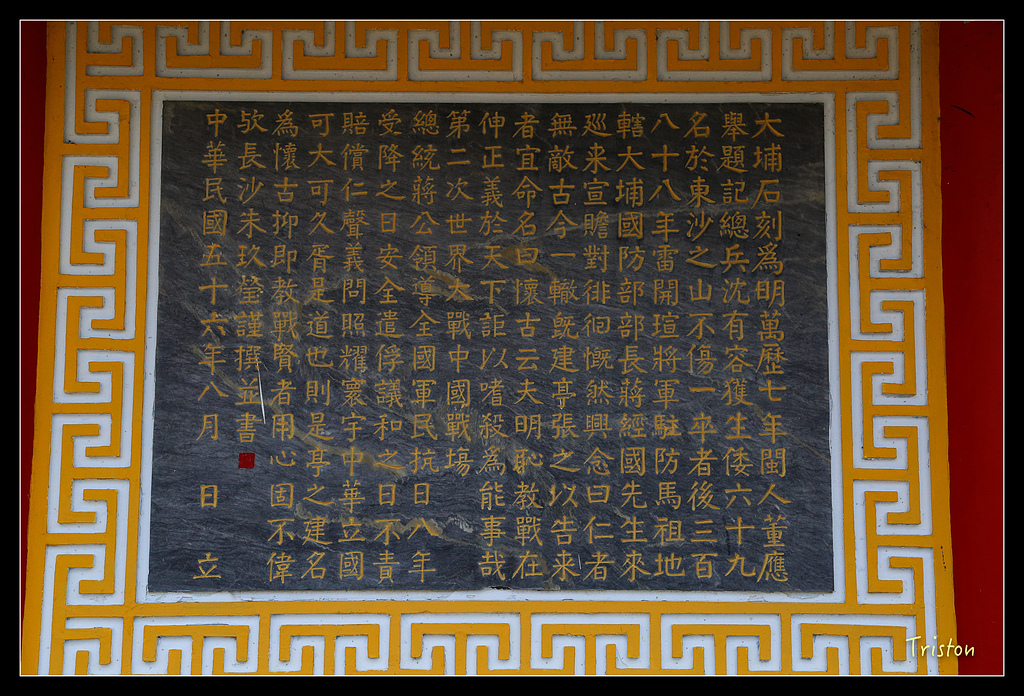 大埔石刻為明萬歷七年閩人董應
舉題記總兵沈有容獲生倭六十九
名於東沙之山不傷一卒者後三百
八十八年雷開瑄將軍駐防馬祖地
轄大埔國防部部長蔣經國先生來
巡来宣贍對徘徊慨然興念曰仁者
無敵古今一轍既建亭張之以告来
者宜命名曰懷古云夫明恥教戰在
伸正義於天下詎以嗜殺為能事哉
第二次世界大戰中國戰場
總統蔣公領導全國軍民抗日八年
受降之日安全遣俘議和之日不責
賠償仁聲義問照耀寰宇中華立國
可大可久胥是道也則是亭之建名
為懷古抑即教戰賢者用心固不偉
欤長沙朱玖瑩謹撰並書
中華民國五十六年八月 日 立
Triston